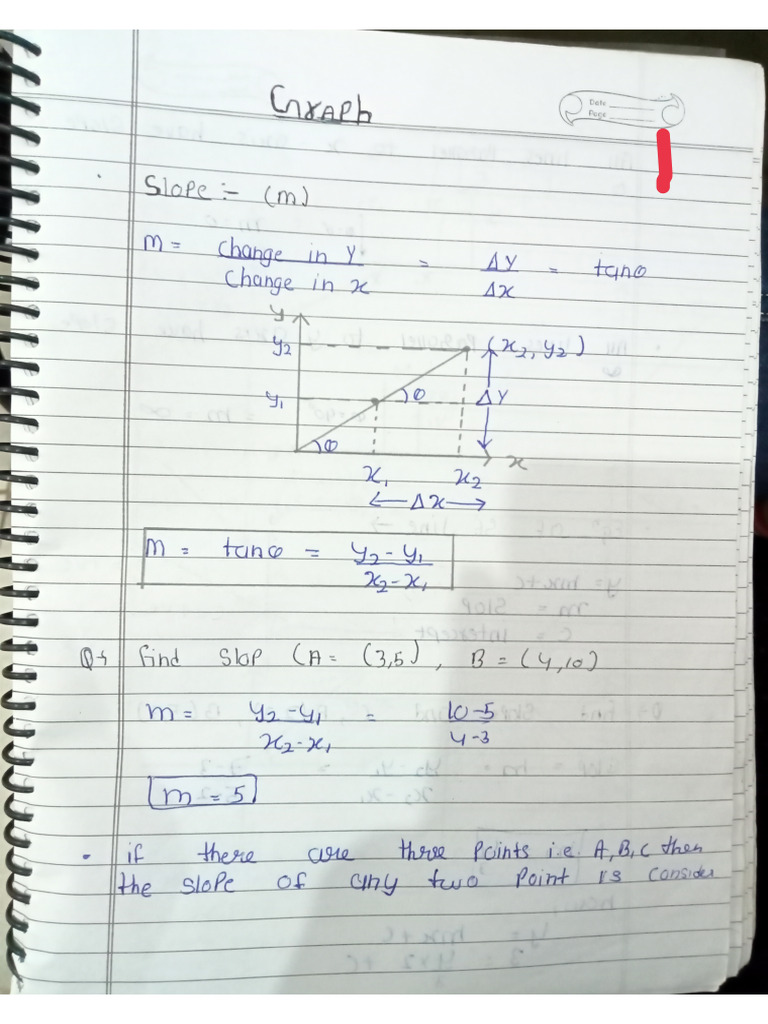 Graph
Date
Page
Slope :- (m)
m = Change in Y / Change in x = ΔY / Δx = tanθ
y
y2
(x2, y2)
y1
θ
ΔY
θ
x
x1 x2
← Δx →
m = tanθ = y2 - y1 / x2 - x1
Q→ find Slop (A = (3,5), B = (4,10)
m = y2 - y1 / x2 - x1 = 10-5 / 4-3
m = 5
• if there are three points i.e. A, B, C then
the slope of any two point is consider